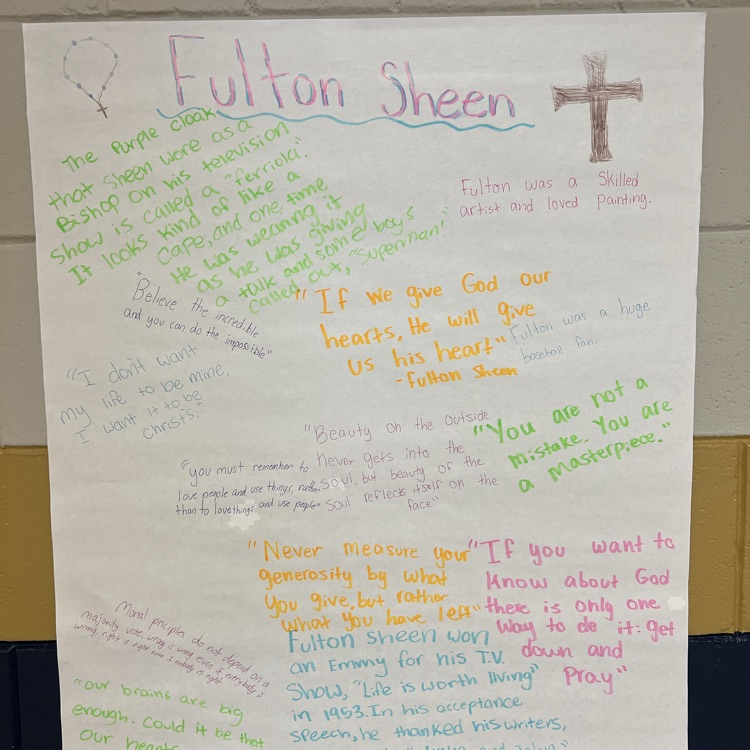 Fulton Sheen
The Purple cloak
that Sheen wore as a
Bishop on his television
Show is called a "ferriola".
It looks kind of like a
cape, and one time
He was wearing it
as he was giving
a talk and some boys
called out, "Superman!"
Fulton was a Skilled
artist and loved Painting.
"Believe the incredible
and you can do the impossible"
"If we give God our
hearts, He will give
us his heart"
-Fulton Sheen
Fulton was a huge
baseball fan.
"I don't want
my life to be mine.
I want it to be
Christ's."
"Beauty on the outside
Never gets into the
soul, but beauty of the
soul reflects itself on the
face"
"You are not a
mistake. You are
a masterpiece."
"you must remember to
love people and use things, rather
than to love things, and use people"
"Never measure your
generosity by what
You give, but rather
what you have left"
"If you want to
Know about God
there is only one
way to do it: get
down and
Pray"
Moral priciples do not depend on a
majority vote. wrong is wrong even if everybody is
wrong. right is right even if nobody is right
Fulton Sheen won
an Emmy for his T.V.
Show, "Life is worth living"
in 1953. In his acceptance
speech, he thanked his writers,
"our brains are big
enough. Could it be that
our hearts